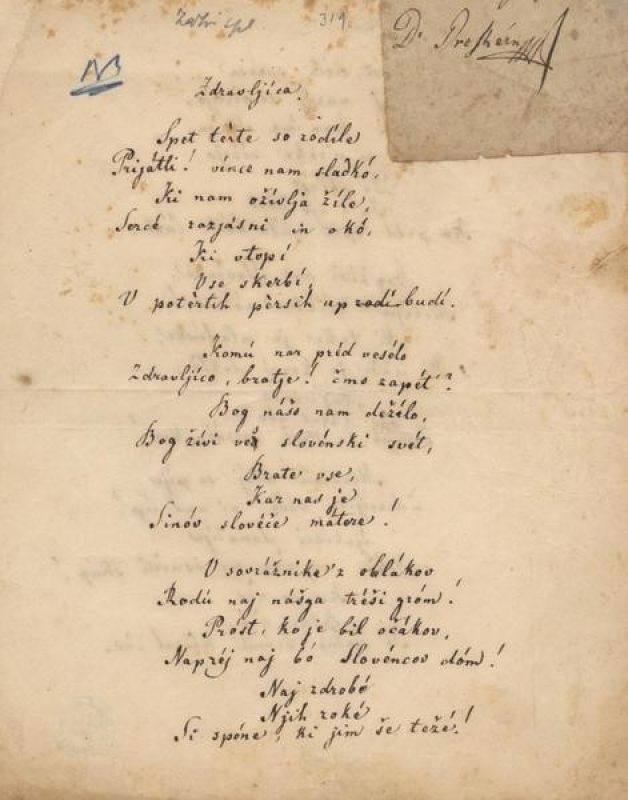 319.
Dr Preshérn
NB
Zdravljíca.
Spet tèrte so rodíle
Prijátli! vínce nam sladkó,
Ki nam ožívlja žíle,
Sercé razjásni in okó,
Ki vtopí
Vse skerbí,
V potèrtih pèrsih up rodí budí.
Komú nar préd vesélo
Zdravljíco, bratje! čmo zapét'?
Bog nášo nam dežélo,
Bog žívi veš slovénski svét,
Brate vse,
Kar nas je
Sinóv slovéče mátere!
V sovrážnike 'z oblákov
Rodú naj nášga tréši gróm!
Próst, ko je bil očákov,
Napréj naj bó Slovéncov dóm!
Naj zdrobé
Njih roké
Si spóne, ki jim še težé!